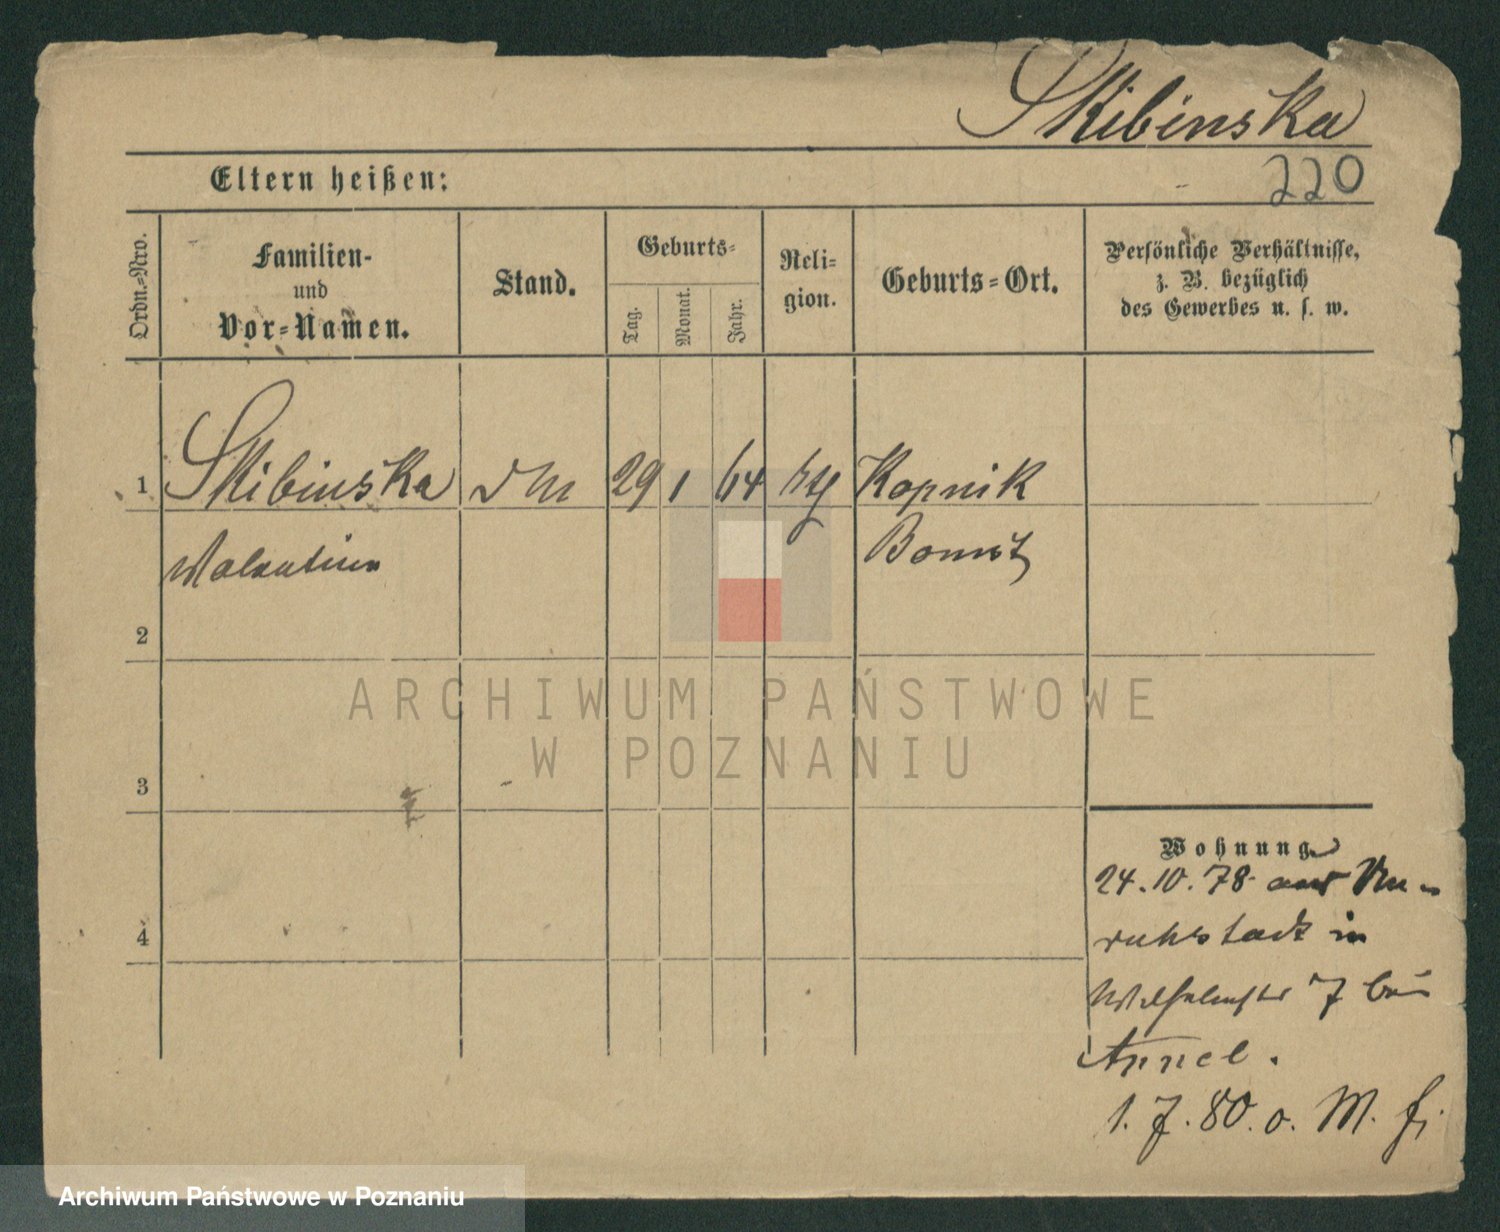 Skibinska
Eltern heißen:
220
Ordn.-Nro.
Familien-
und
Vor-Namen.
Stand.
Geburts-
Tag.
Monat.
Jahr.
Reli-
gion.
Geburts-Ort.
Persönliche Verhältnisse,
z. B. bezüglich
des Gewerbes u. s. w.
1
Skibinska
29
1
64
Kopnik
Valentina
Bomst
2
ARCHIWUM PAŃSTWOWE
W POZNANIU
3
Wohnung
24.10.78 aus Un-
ruhstadt in
4
Wilhelmstr 7 bei
Appel.
1.7.80. o. M.
Archiwum Państwowe w Poznaniu